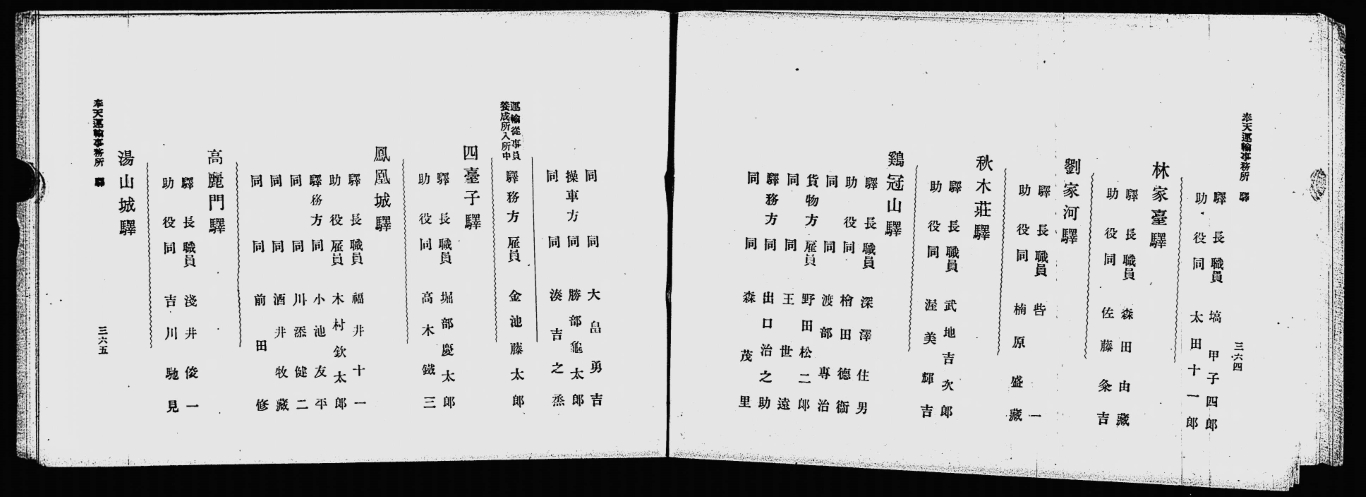 奉天運輸事務所　驛
三六四
驛長　職員　塙甲子四郎
助役　同　太田十一郎
林家臺驛
驛長　職員　森田由藏
助役　同　佐藤粂吉
劉家河驛
驛長　職員　呰一
助役　同　楠原盛藏
秋木莊驛
驛長　職員　武地吉次郎
助役　同　渥美輝吉
鷄冠山驛
驛長　職員　深澤住男
助役　同　檜田德衞
同　同　渡部專治
貨物方　雇員　野田松二郎
同　同　王世遠
驛務方　同　出口治之助
同　同　森茂里
同　同　大畠勇吉
操車方　同　勝部龜太郎
同　同　湊吉之烝
運輸從事員養成所入所中　驛務方　雇員　金池藤太郎
四臺子驛
驛長　職員　堀部慶太郎
助役　同　高木鐵三
鳳凰城驛
驛長　職員　福井十一
助役　雇員　木村欽太郎
驛務方　同　小池友平
同　同　川添健二
同　同　酒井牧藏
同　同　前田修
高麗門驛
驛長　職員　淺井俊一
助役　同　吉川馳見
湯山城驛
奉天運輸事務所　驛
三六五